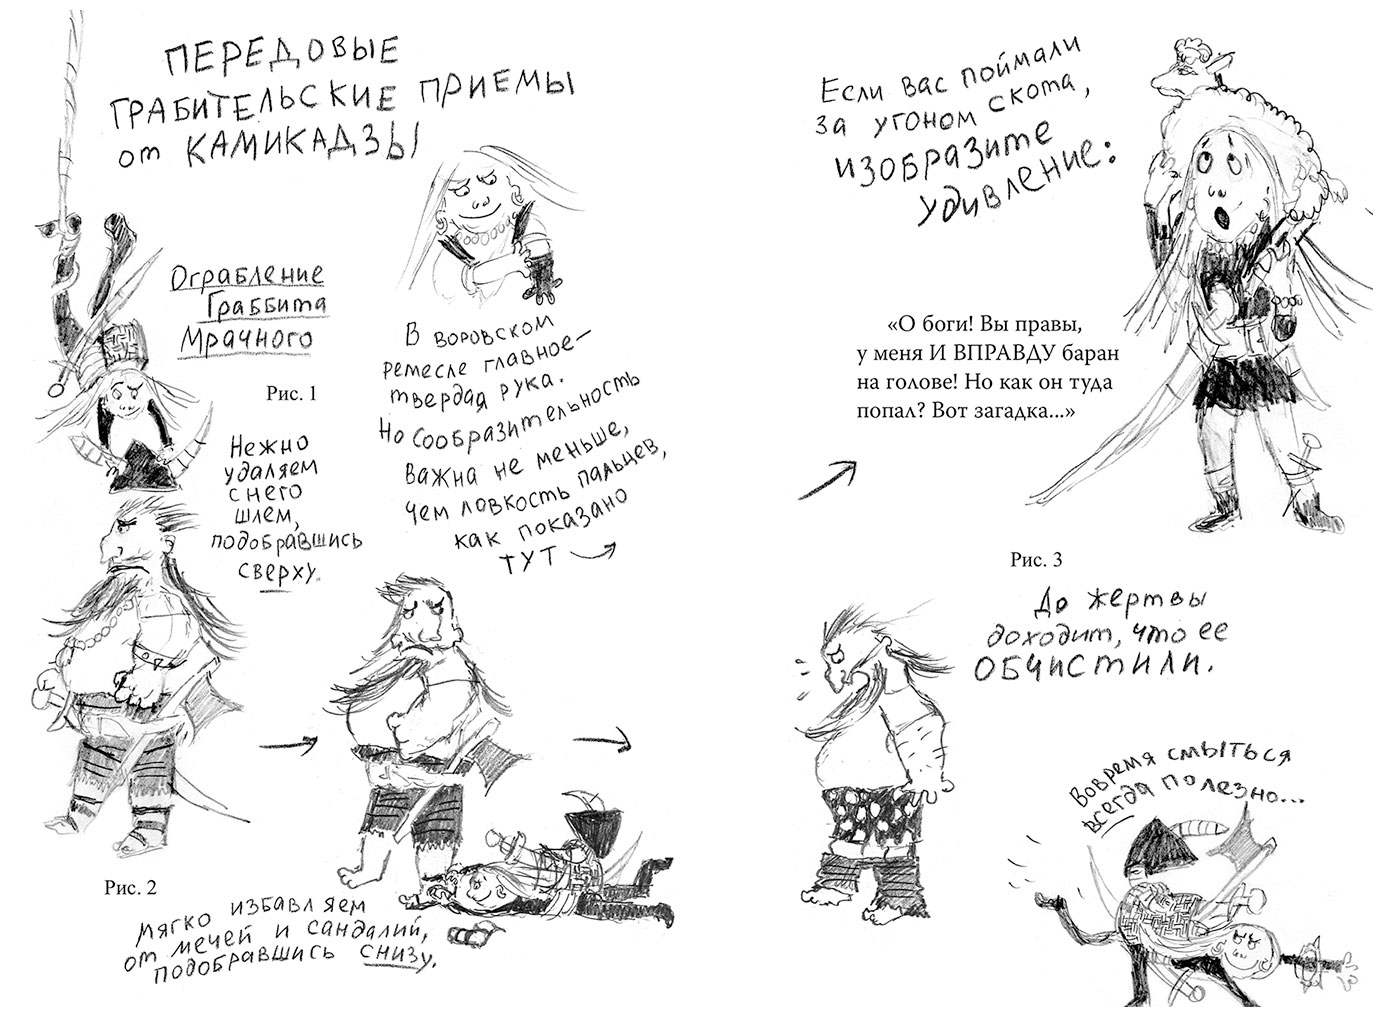 ПЕРЕДОВЫЕ
ГРАБИТЕЛЬСКИЕ ПРИЕМЫ
от КАМИКАДЗЫ
Ограбление
Граббита
Мрачного
Рис. 1
Нежно
удаляем
с него
шлем,
подобравшись
сверху.
В воровском
ремесле главное—
твердая рука.
Но Сообразительность
важна не меньше,
чем ловкость пальцев,
как показано
ТУТ
Рис. 2
Мягко избавляем
от мечей и сандалий,
подобравшись снизу.
Если вас поймали
за угоном скота,
изобразите
удивление:
«О боги! Вы правы,
у меня И ВПРАВДУ баран
на голове! Но как он туда
попал? Вот загадка...»
Рис. 3
До жертвы
доходит, что ее
ОБЧИСТИЛИ.
Вовремя смыться
всегда полезно...